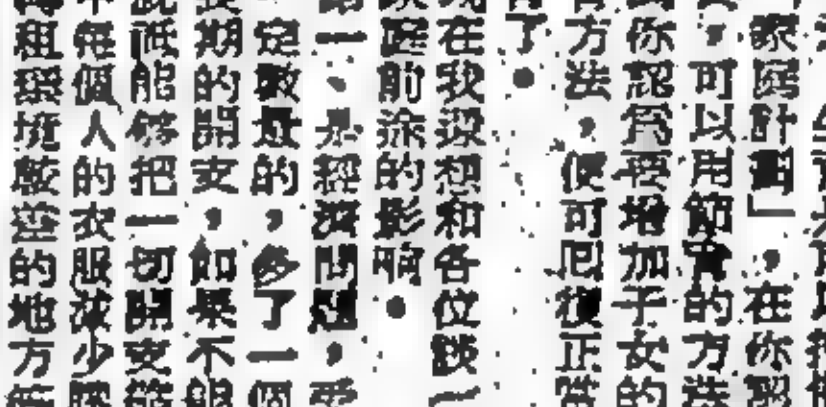 家庭計劃」，在你
，可以用節育的方法
你認為要增加子女的
方法，便可回復正常
了。
在我設想和各位談
庭前途的影响。
一、是經濟問題，
定數量的，多了一個
期的開支，如果不能
祗能够把一切開支
每個人的衣服減少
租環境較差的地方